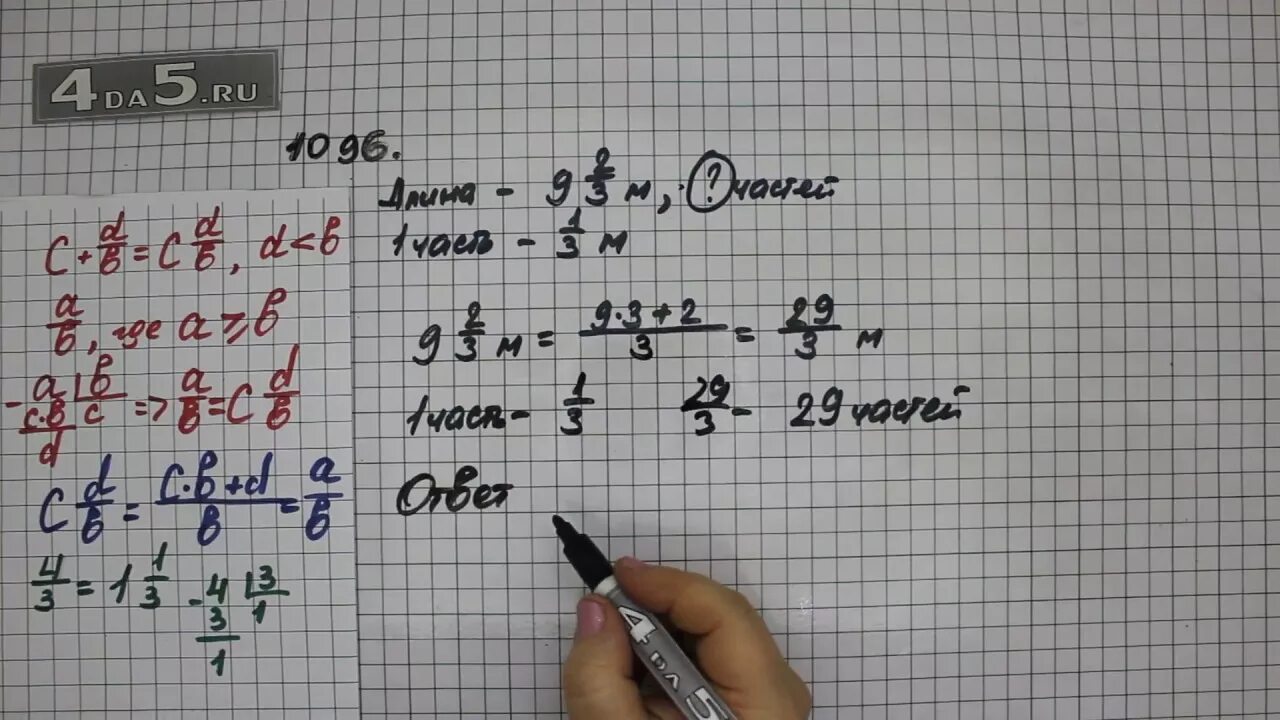 4DA5.RU
1096.
Длина - 9 2/3 м, ? частей
1 часть - 1/3 м
9 2/3 м = (9·3+2)/3 = 29/3 м
1 часть - 1/3   29/3 - 29 частей
Ответ
C + d/в = C d/в, d < в
a/в, где a ⩾ в
- a | в
c·в | c => a/в = C d/в
d
C d/в = (C·в+d)/в = a/в
4/3 = 1 1/3   - 4 | 3
3 | 1
1
4DA5